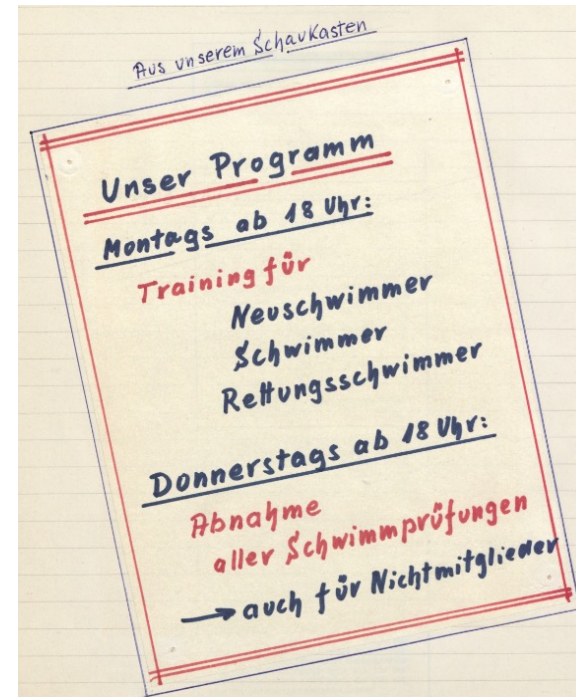 Aus unserem Schaukasten
Unser Programm
Montags ab 18 Uhr:
Training für
Neuschwimmer
Schwimmer
Rettungsschwimmer
Donnerstags ab 18 Uhr:
Abnahme
aller Schwimmprüfungen
→ auch für Nichtmitglieder